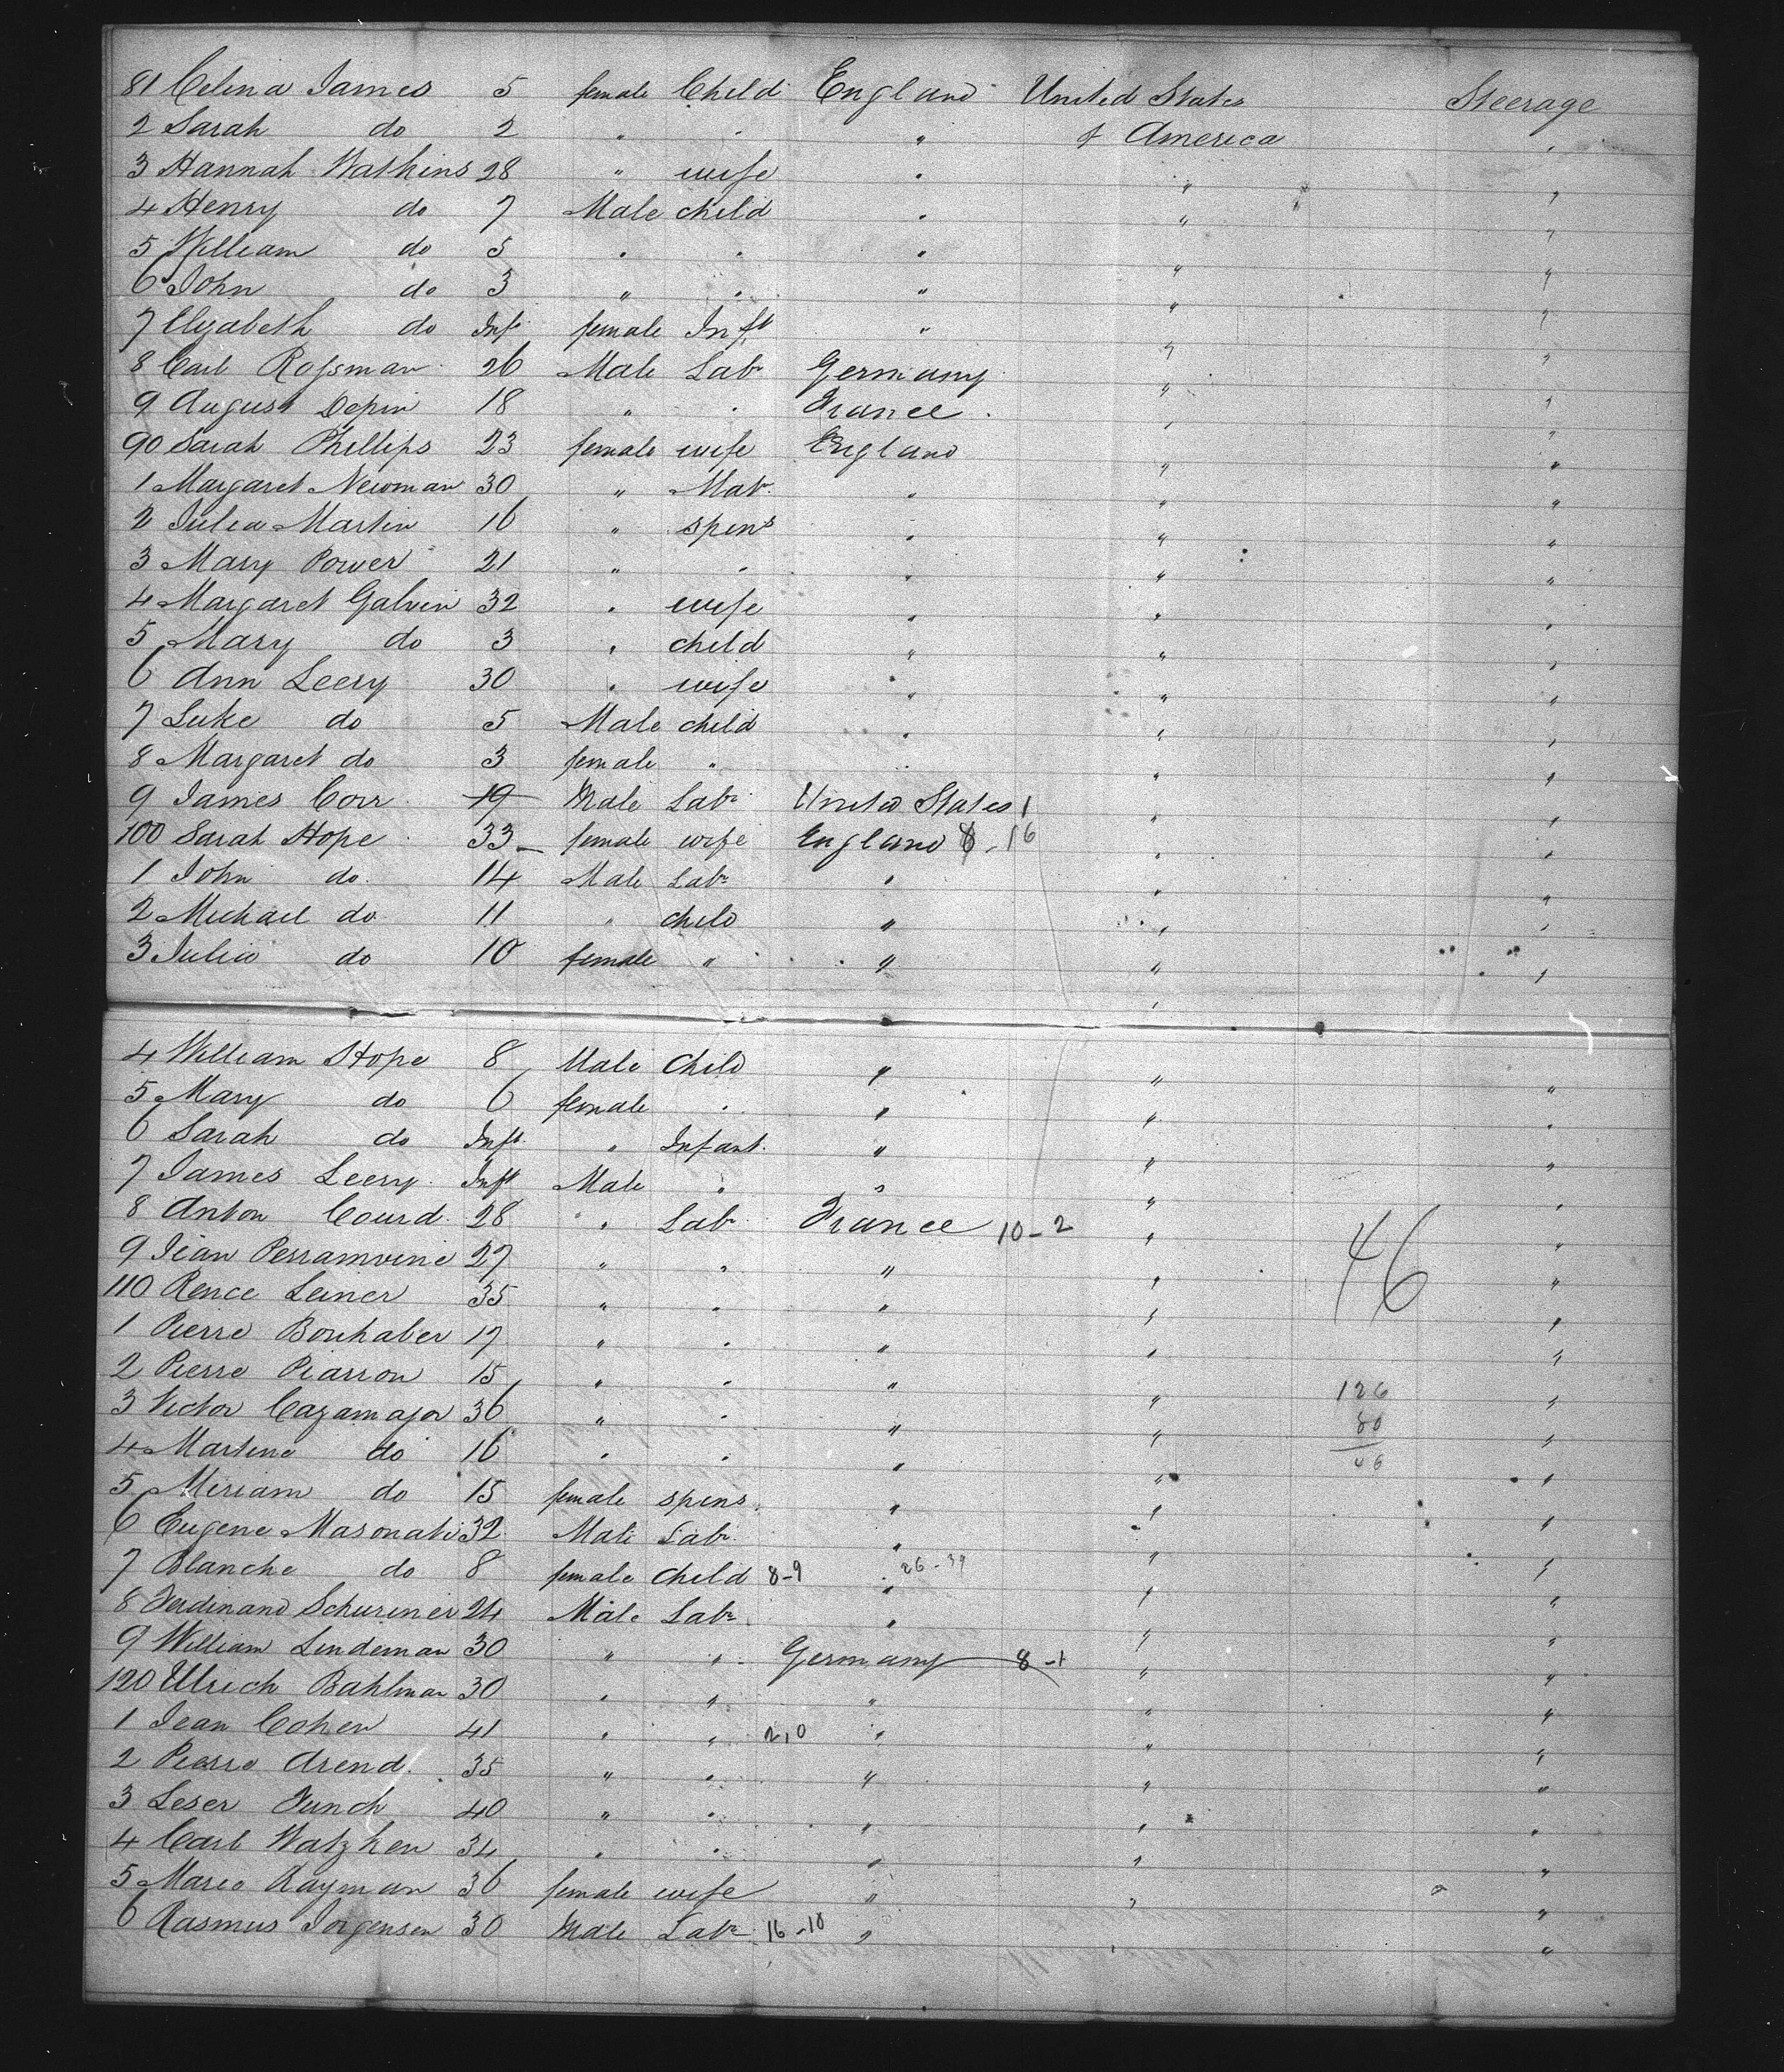 81 Celina James 5 female Child England United States Steerage
2 Sarah do 2 " " " of America "
3 Hannah Watkins 28 " wife " " "
4 Henry do 7 Male child " " "
5 William do 5 " " " " "
6 John do 3 " " " " "
7 Elyabeth do Inft female Inft " " "
8 Carl Rossman 26 Male Labr Germany " "
9 August Depin 18 " " France " "
90 Sarah Phillips 23 female wife England " "
1 Margaret Newman 30 " Mat. " " "
2 Julia Martin 16 " spins " " "
3 Mary Power 21 " " " " "
4 Margaret Galvin 32 " wife " " "
5 Mary do 3 " child " " "
6 Ann Leery 30 " wife " " "
7 Luke do 5 Male child " " "
8 Margaret do 3 female " " " "
9 James Corr 19 Male Labr United States 1 " "
100 Sarah Hope 33 female wife England 8-16 " "
1 John do 14 Male Labr " " "
2 Michael do 11 " child " " "
3 Julia do 10 female " " " "
4 William Hope 8 Male Child " " "
5 Mary do 6 female " " " "
6 Sarah do Inft " Infant " " "
7 James Leery Inft Male " " " "
8 Anton Courd 28 " Labr France 10-2 " "
9 Jean Perramvine 27 " " " " 46 "
110 Rence Leiner 35 " " " " "
1 Pierre Bonhaber 17 " " " " "
2 Pierre Piarron 15 " " " " 126 "
3 Victor Cazamajor 36 " " " " 80 "
4 Martine do 16 " " " " 46 "
5 Miriam do 15 female spins " " "
6 Eugene Masonati 32 Male Labr " " "
7 Blanche do 8 female child 8-9 " 26-39 " "
8 Ferdinand Schuriner 24 Male Labr " " "
9 William Lindeman 30 " " Germany 8-1 " "
120 Ulrich Bahlman 30 " " " " "
1 Jean Cohen 41 " " 2,0 " " "
2 Pierre Arend 35 " " " " "
3 Leser Funch 40 " " " " "
4 Carl Watzhen 34 " " " " "
5 Marie Rayman 36 female wife " " "
6 Rasmus Jorgensen 30 Male Labr 16-10 " " "